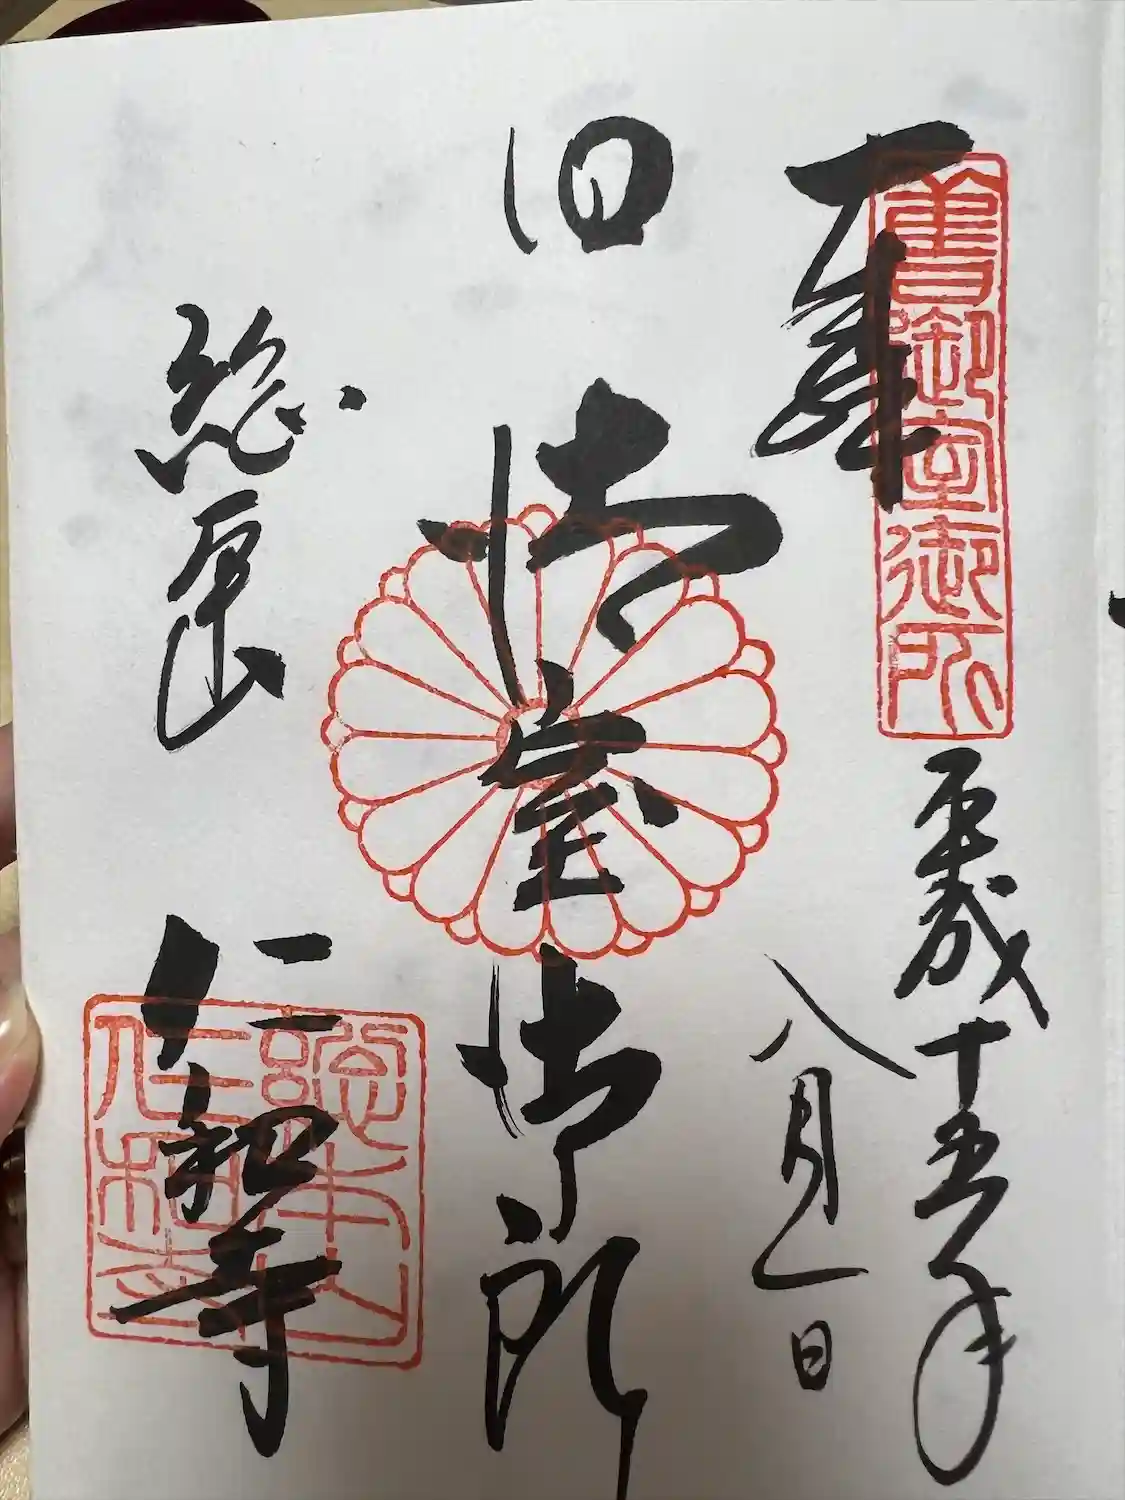 舊御室御所
平成十五年
八月一日
旧御室御所
総本山 仁和寺
總本山
仁和寺